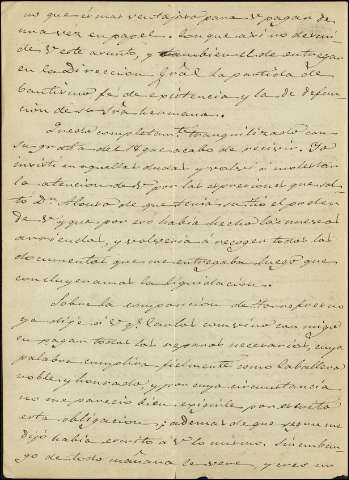 no que es mas ventajoso para V. pagar de
una vez en papel. Con que asi no descui-
de V. este asunto, y tambien el de entregar
en la Direccion Gral la partida de
bautismo, fe de existencia y la de defun-
cion de su Sra hermana.
Quedo completamte. tranquilizado con
su grata del 8 que acabo de recivir. Yo
insistí en aquellas dudas y volví á molestar
la atencion de V. por las espresiones que sol-
tó Dn. Alonso de que tenia su tio el poder
de V. y que por eso habia hecho los nuevos
arriendos, y volveria á recoger todos los
documentos que me entregaba luego que
concluyeramos la liquidacion.
Sobre la composicion de Torrefresno
ya dije á V. qe. Carlos convino con migo
en pagar todos los reparos necesarios, cuya
palabra cumpliria fielmente como Caballero
noble y honrado, y por cuya circunstancia
no me parecio bien exigirle por escrito
esta obligacion; ademas de que segun me
dijo habia escrito á V. lo mismo. Sin embar-
go de todo mañana le veré, y creo un